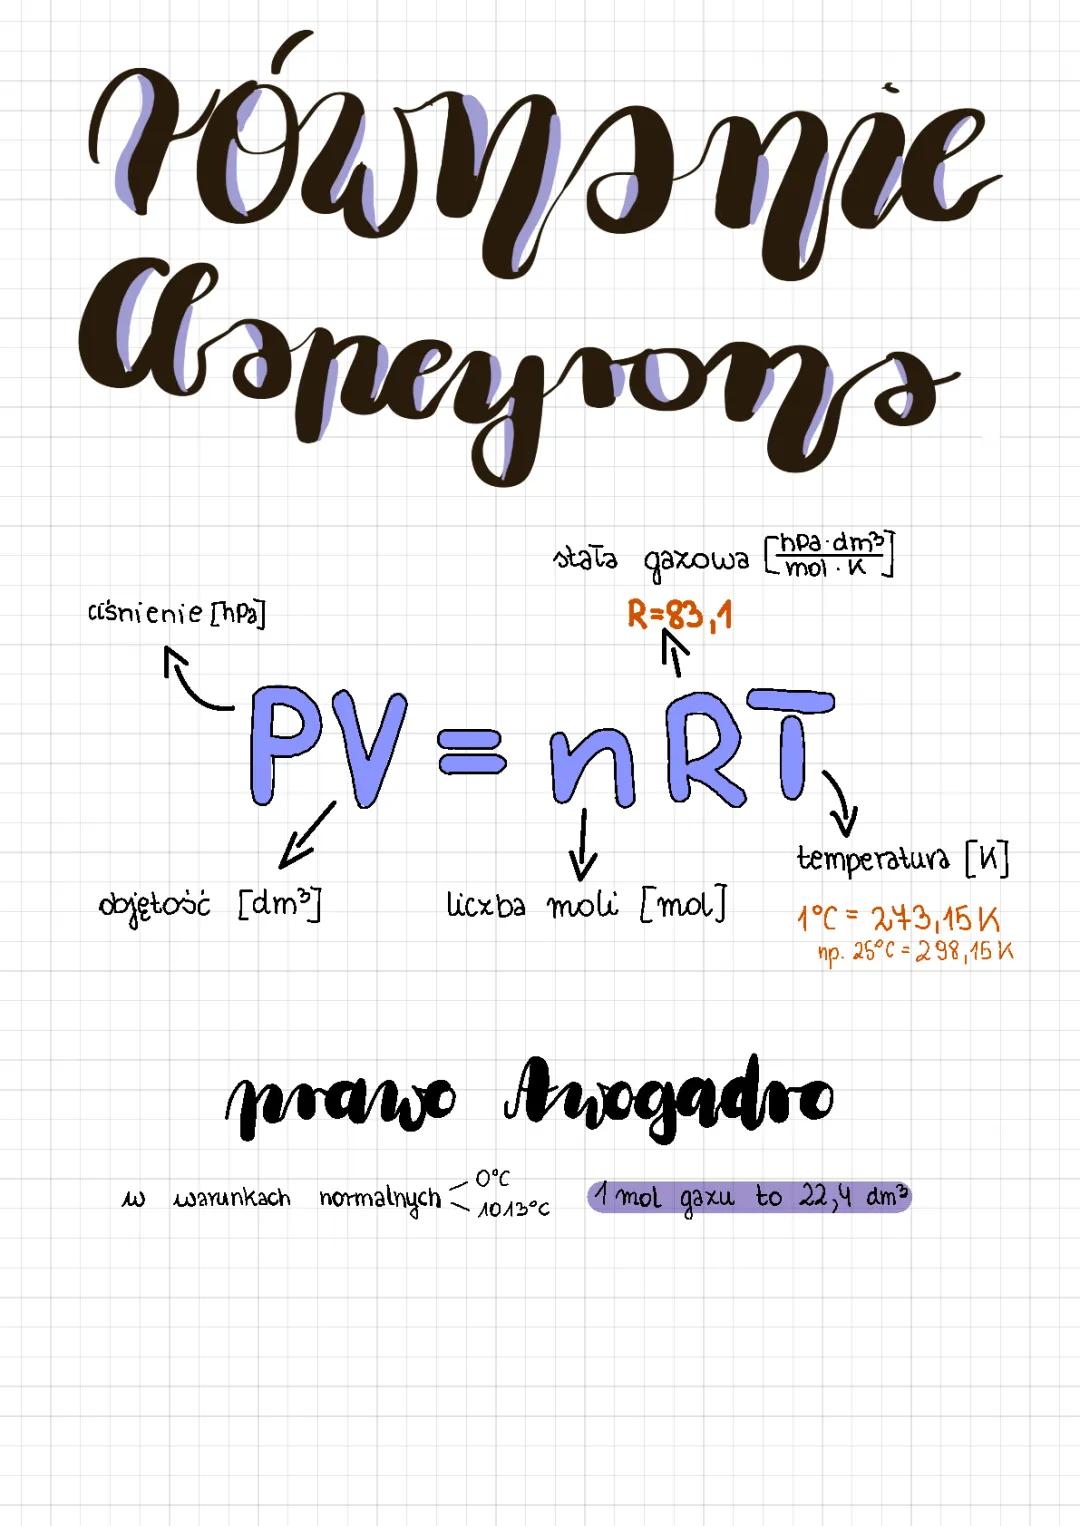 równanie
Clapeyrona
stała gazowa [hPa·dm³/mol·K]
ciśnienie [hPa]
R=83,1
PV=nRT
temperatura [K]
objętość [dm³]
liczba moli [mol]
1°C = 273,15K
np. 25°C = 298,15K
prawo Awogadro
w warunkach normalnych
0°C
1013°C
1 mol gazu to 22,4 dm³